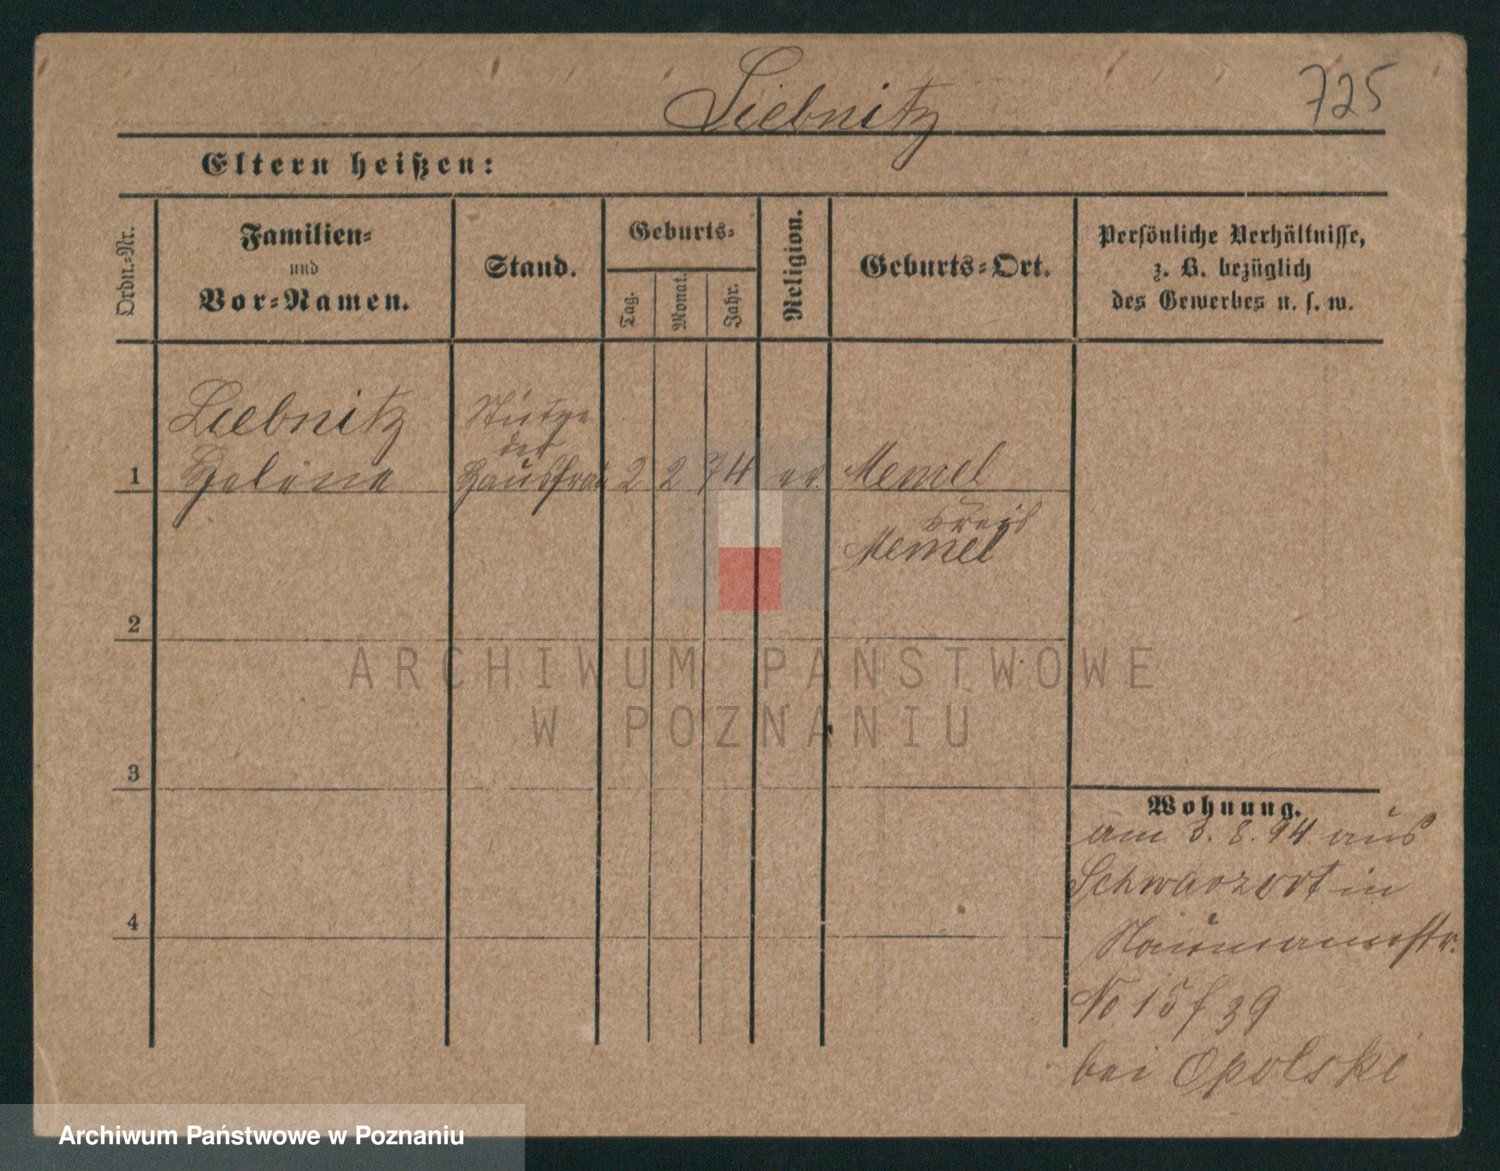 Liebnitz
725
Eltern heißen:
Ordn.-Nr.
Familien-
und
Vor-Namen.
Stand.
Geburts-
Tag.
Monat.
Jahr.
Religion.
Geburts-Ort.
Persönliche Verhältnisse,
z. B. bezüglich
des Gewerbes u. s. w.
Liebnitz
Stütze
der
1 Heléne Hausfrau 2 2 74 ev. Memel
Kreis
Memel
2
3
4
Wohnung.
am 3. 8. 94 aus
Schwarzort in
Naumannstr.
No 15 f 39
bei Opolski
ARCHIWUM PAŃSTWOWE
W POZNANIU
Archiwum Państwowe w Poznaniu